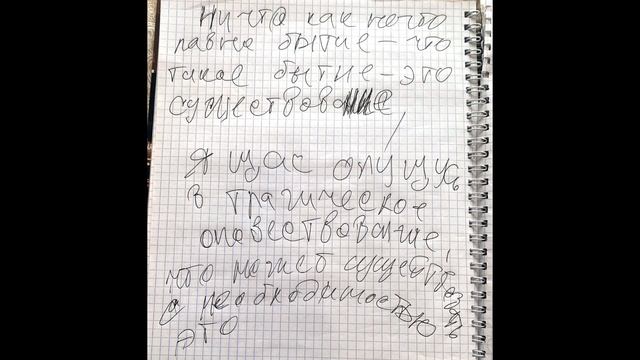 Ничто как нечто
равно бытие – что
такое бытие – это
существование
я щас опущусь
в трагическое
оповествование!
что может существовать
с необходимостью
это